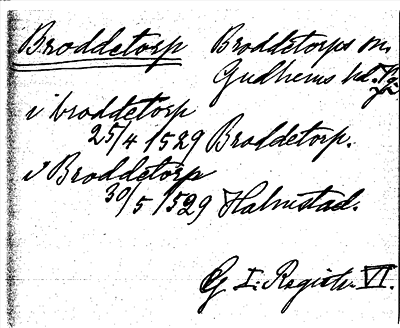 Broddetorp Broddetorps sn,
Gudhems hd.
i broddetorp
25/4 1529 Broddetorp.
i Broddetorp
30/5 1529 Halmstad.
G I: Registr. VI.